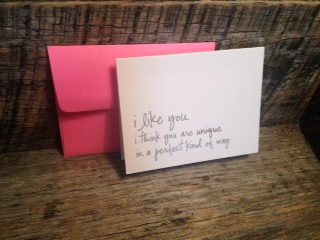 i like you.
i think you are unique.
in a perfect kind of way.